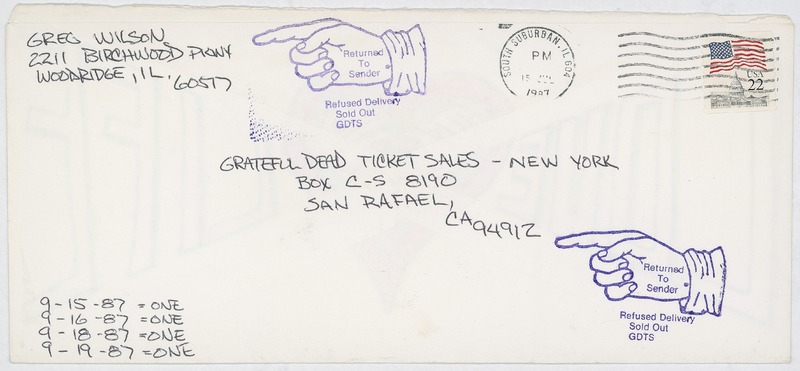 GREG WILSON
2211 BIRCHWOOD PKWY
WOODRIDGE, IL, 60517
Returned
To
Sender
Refused Delivery
Sold Out
GDTS
SOUTH SUBURBAN, IL 604
PM
15 JUL
1987
USA
22
GRATEFUL DEAD TICKET SALES - NEW YORK
BOX C-S 8190
SAN RAFAEL,
CA 94912
Returned
To
Sender
Refused Delivery
Sold Out
GDTS
9-15-87 = ONE
9-16-87 = ONE
9-18-87 = ONE
9-19-87 = ONE